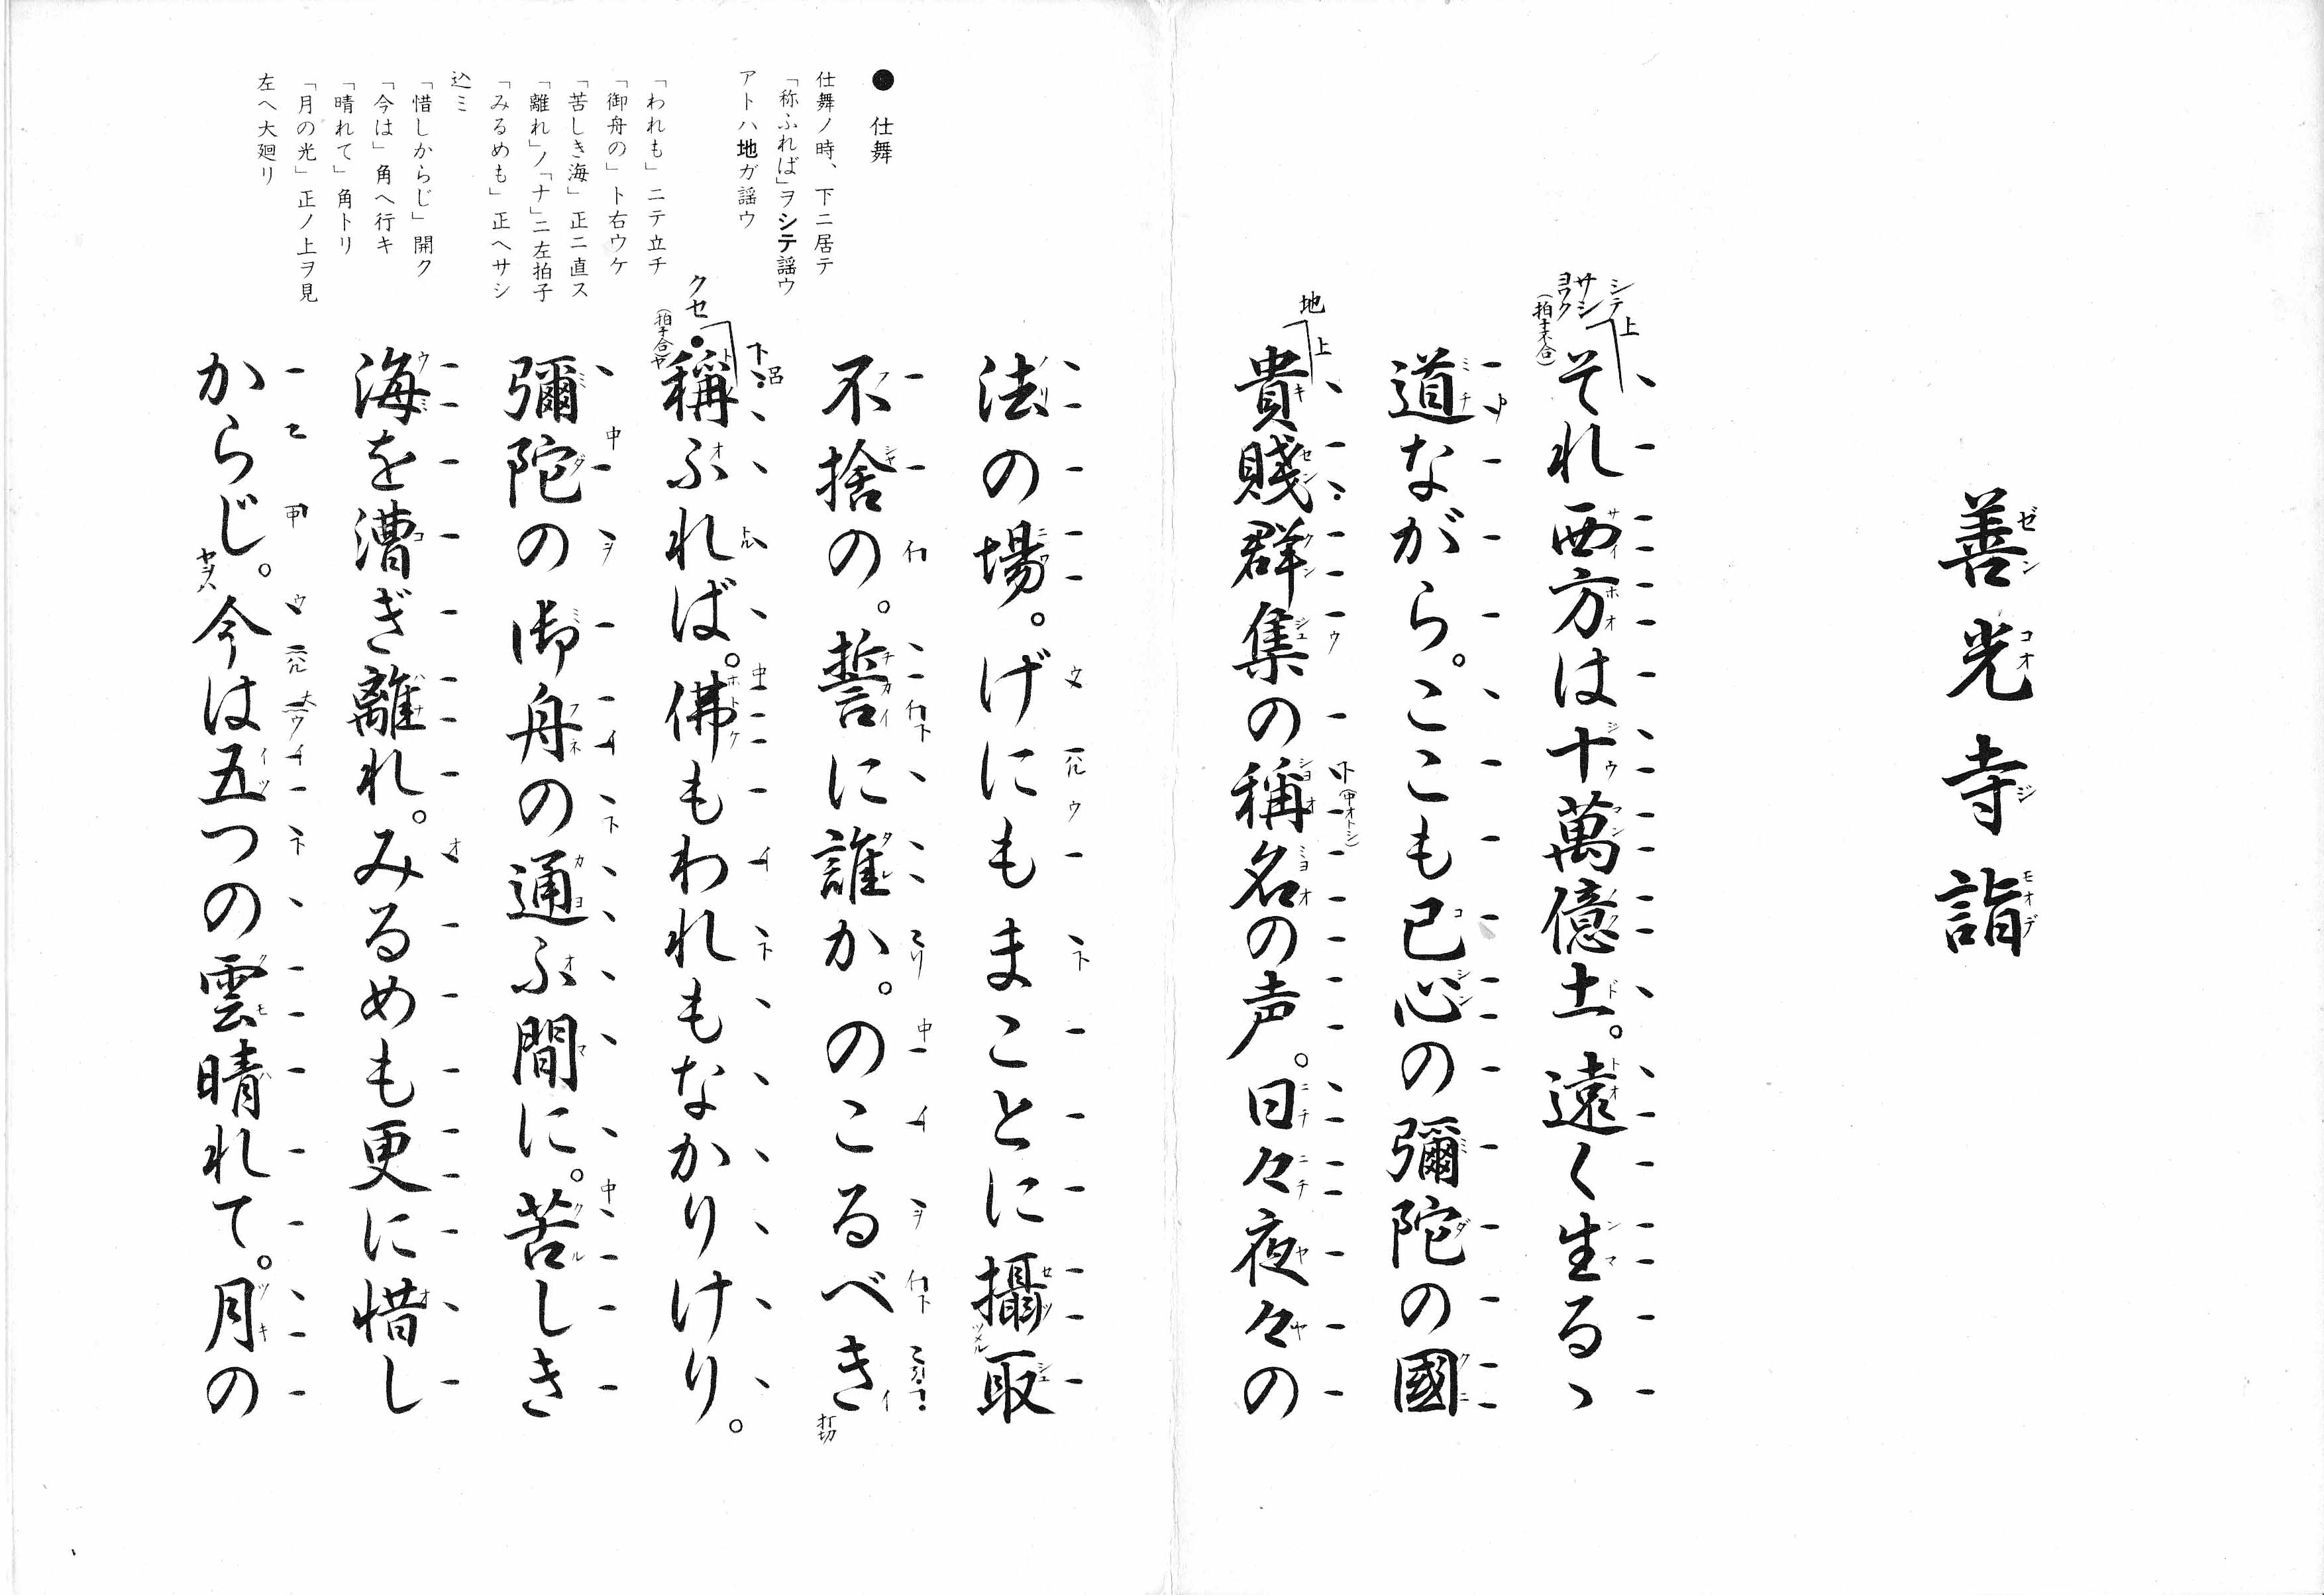 善光寺詣
それ西方は十萬億土。遠く生るゝ
道ながら。ここも己心の彌陀の國
貴賤群集の稱名の声。日々夜々の
法の場。げにもまことに攝取
不捨の。誓に誰か。のこるべき
稱ふれば。佛もわれもなかりけり。
彌陀の御舟の通ふ間に。苦しき
海を漕ぎ離れ。みるめも更に惜し
からじ。今は五つの雲晴れて。月の
● 仕舞
仕舞ノ時、下ニ居テ
「称ふれば」ヲシテ謡ウ
アトハ地ガ謡ウ
「われも」ニテ立チ
「御舟の」ト右ウケ
「苦しき海」正ニ直ス
「離れ」ノ「ナ」ニ左拍子
「みるめも」正ヘサシ
込ミ
「惜しからじ」開ク
「今は」角ヘ行キ
「晴れて」角トリ
「月の光」正ノ上ヲ見
左ヘ大廻リ